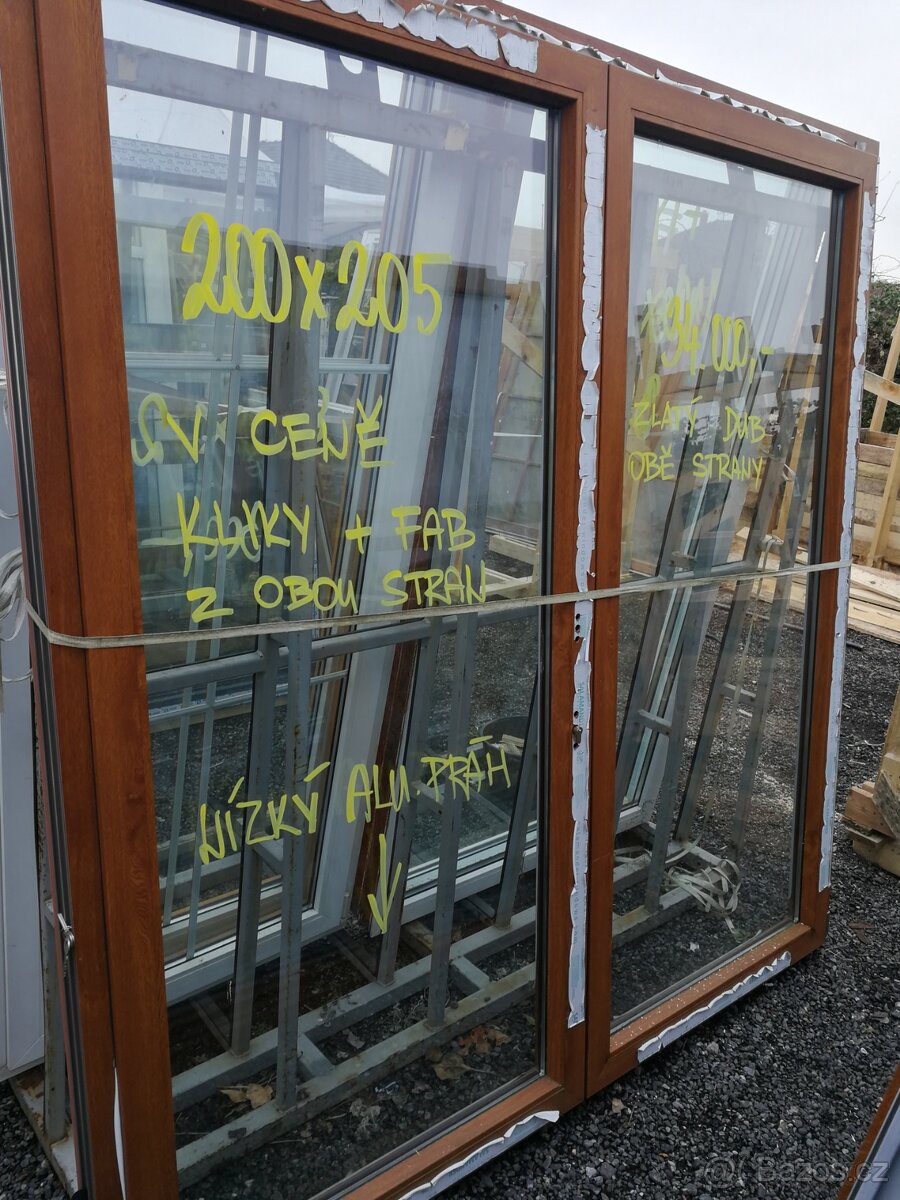 200x205
V CENĚ
KLIKY + FAB
Z OBOU STRAN
NÍZKÝ ALU. PRÁH
34.000,-
ZLATÝ DUB
OBĚ STRANY
Bazos.cz